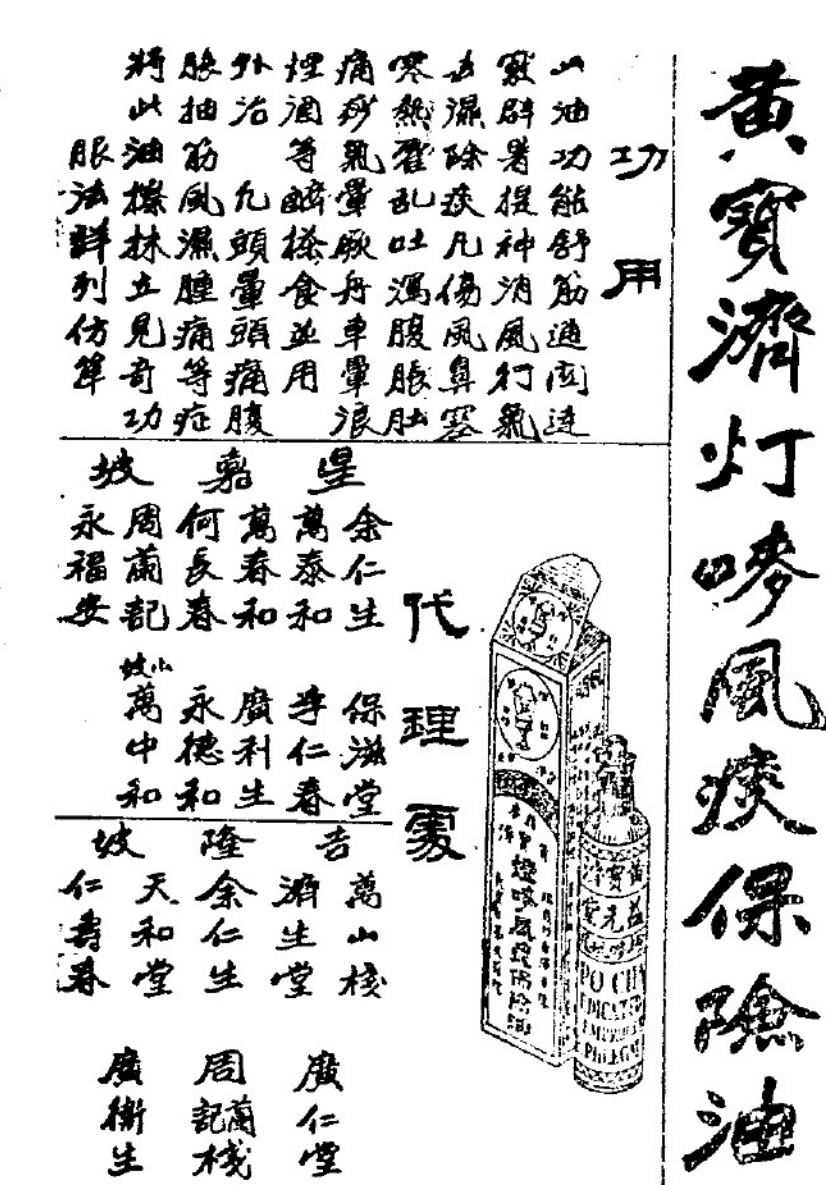 黃寶濟灯嘜風痰保險油
功用
此油功能舒筋通關速
竅辟暑提神消風行氣
去濕除痰凡傷風鼻塞
寒熱霍乱吐瀉腹脹肚
痛痧氣暈厥舟車暈浪
埋酒等醉搽食並用
外治 凡頭暈頭痛腹
脹抽筋風濕腫痛等症
將此油搽抹立見奇功
服法詳列仿單
代理處
星嘉坡
余仁生
萬泰和
萬春和
何長春
周蘭記
永福安
保滋堂
李仁春
廣利生
永德和
小坡萬中和
吉隆坡
萬山棧
濟生堂
余仁生
天和堂
仁壽春
廣仁堂
周蘭記棧
廣衛生
燈嘜風痰保險油
黃寶濟
益元堂
PO CHA